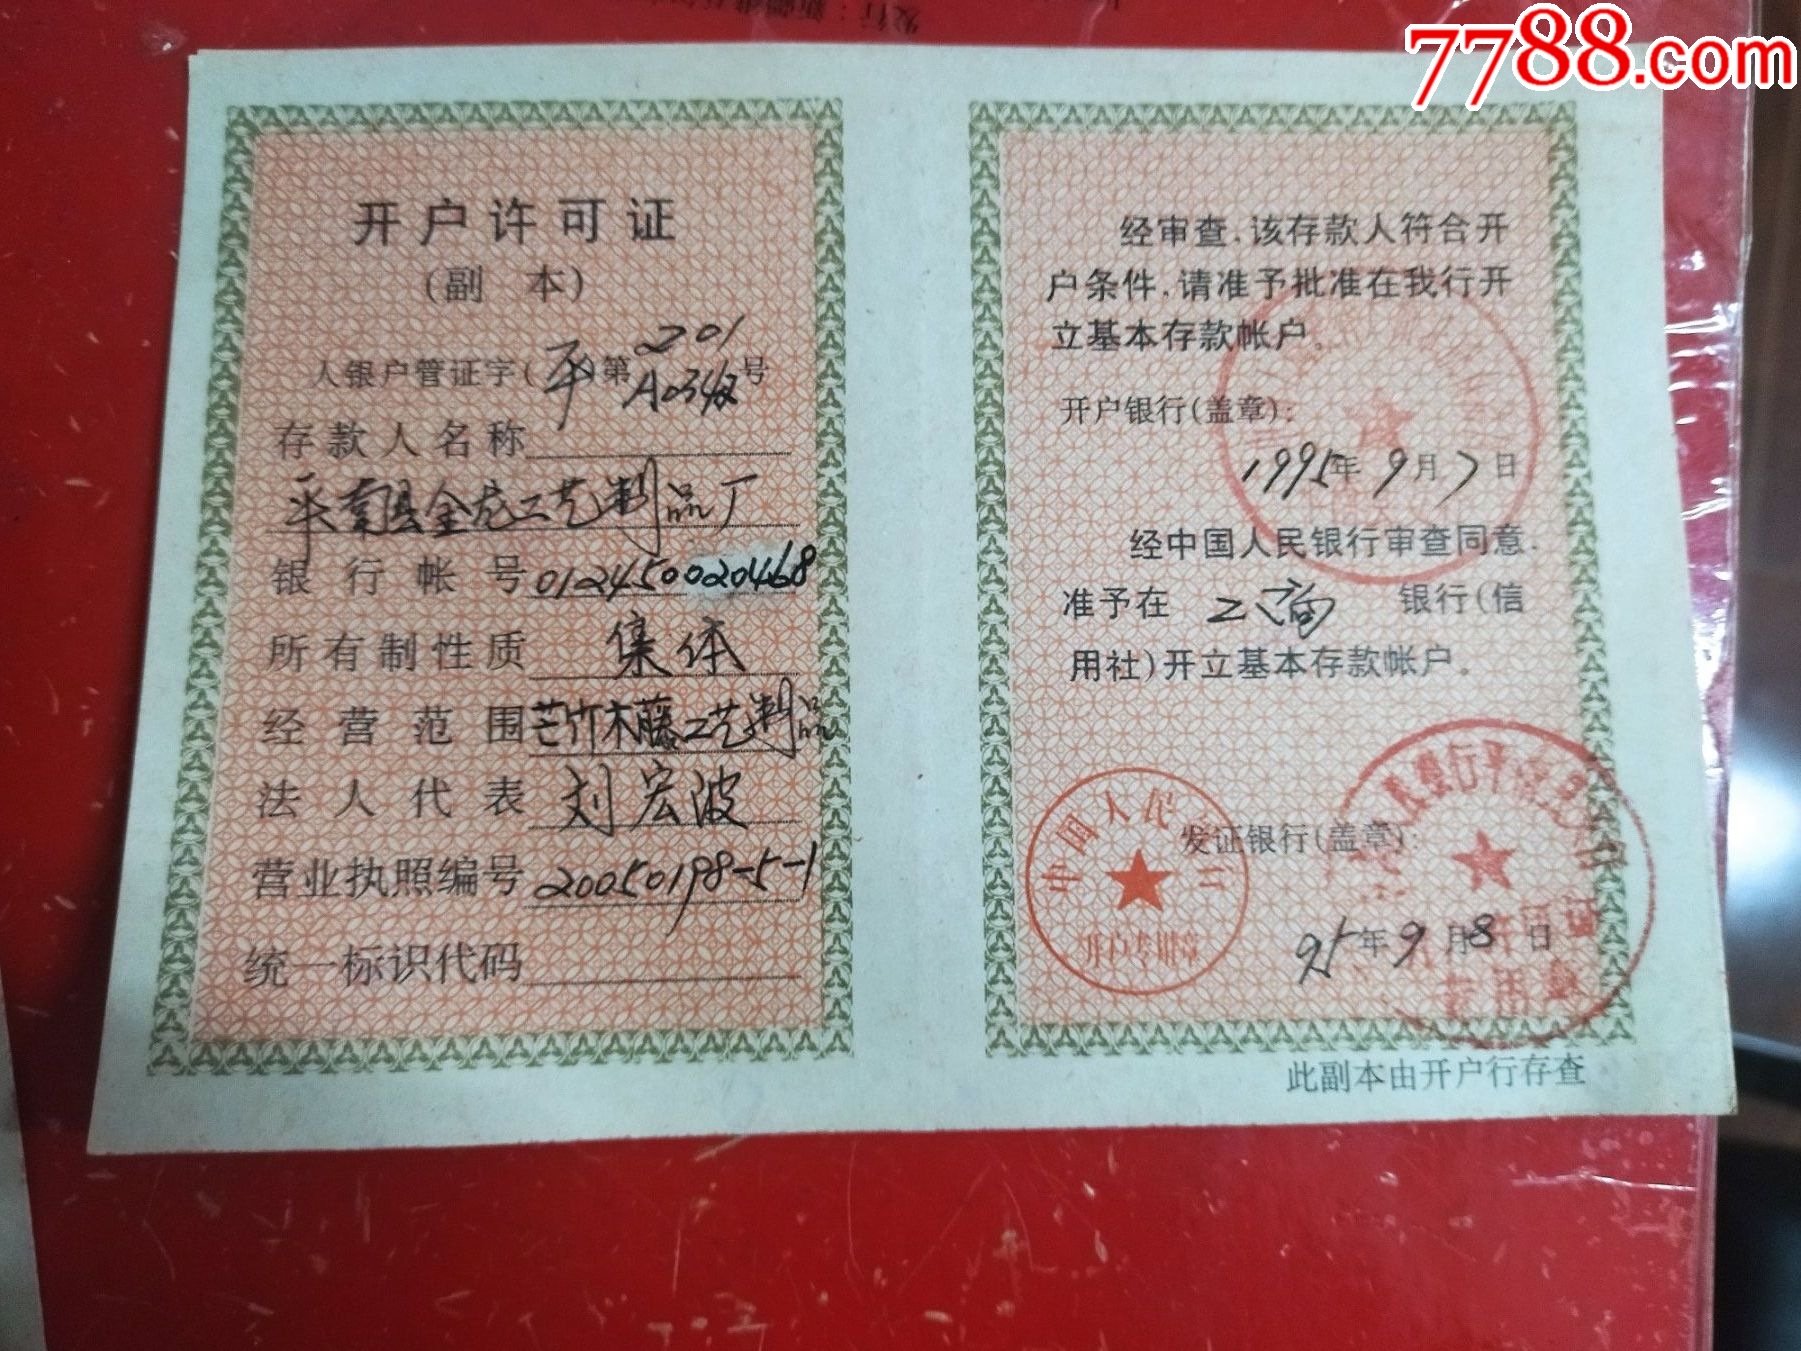 7788.com
开户许可证
(副 本)
人银户管证字(平)第201 A0342号
存款人名称
平南县金龙工艺制品厂
银行帐号 0124500020468
所有制性质 集体
经营范围 芒竹木藤工艺制品
法人代表 刘宏波
营业执照编号 20050198-5-1
统一标识代码
经审查,该存款人符合开
户条件,请准予批准在我行开
立基本存款帐户。
开户银行(盖章):
1995年9月7日
经中国人民银行审查同意,
准予在 工商 银行(信
用社)开立基本存款帐户。
发证银行(盖章):
95年9月8日
中国人民
开户专用章
人民银行平南县
专用章
此副本由开户行存查
发行:新疆